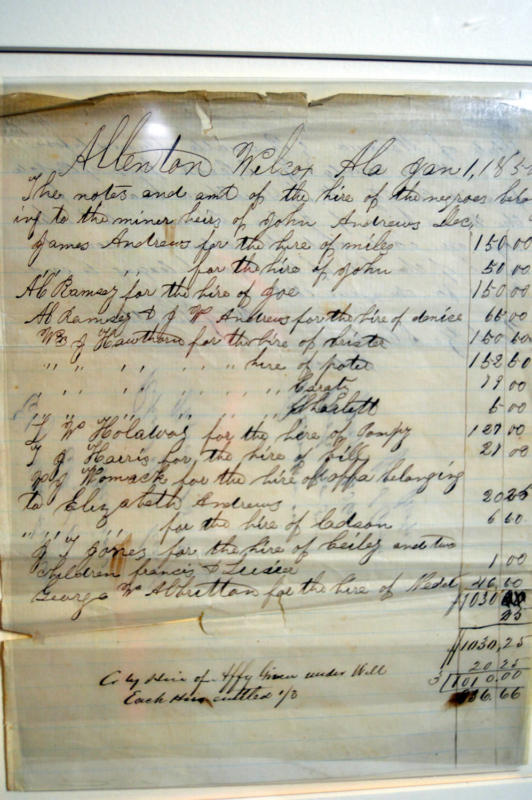 Allenton Wilcox Ala Jan 1, 185
The notes and amt of the hire of the negroes belo
ing to the miner heirs of John Andrews Dec,
James Andrews for the hire of miles 150 00
" " " for the hire of John 50 00
AC Ramsey for the hire of Joe 150 00
AC Ramsey & J W Andrews for the hire of denice 65 00
Wm J Hawthorn for the hire of 150 50
" " " " " " hire of peter 152 50
" " " " " " Sarah 19 00
" " " " " " Sharlett 5 00
Wm Holaway for the hire of Pompy 127 00
T J Harris for the hire of 21 00
Womack for the hire of affa belonging
to Elizabeth Andrews 20 25
" " " " for the hire of Cadson 6 60
Jones for the hire of Ceiley and two
Children francis & 1 00
George Wm Albritton for the hire of Nedd 46 60
1030
25
1030,25
20 25
By Hire of Affy Given under Will 3 1010.00
Each Heir entitled 1/3 336.66